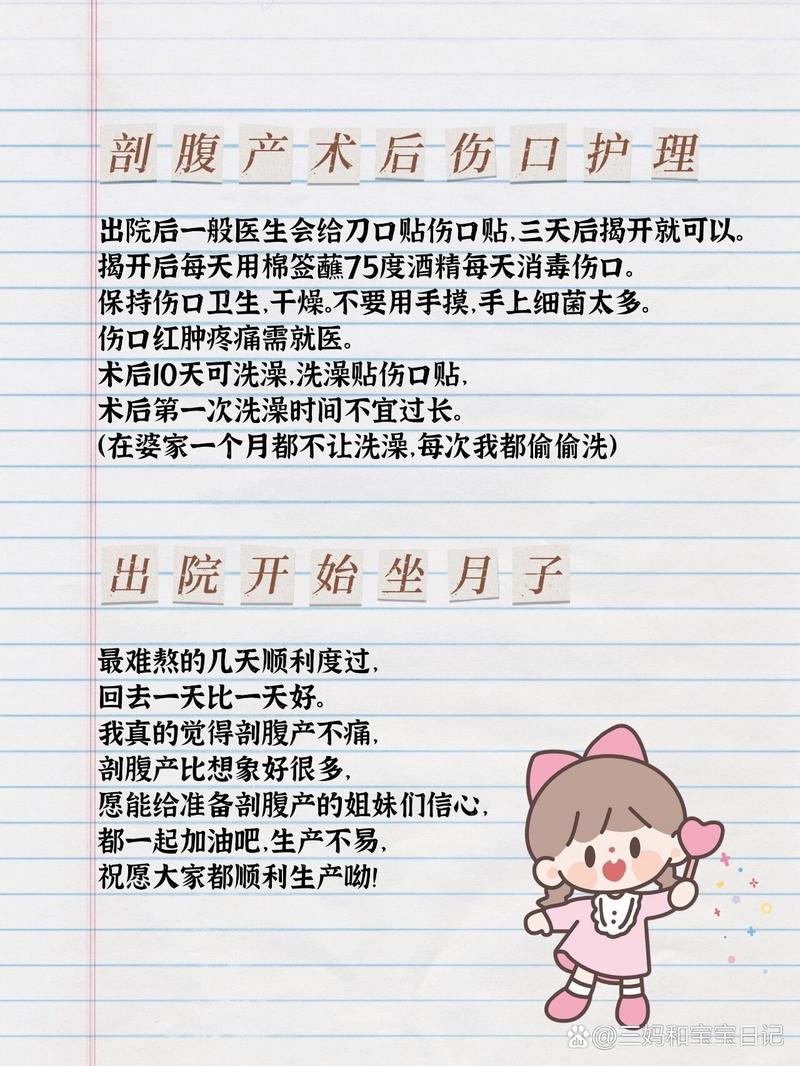 剖腹产术后伤口护理
出院后一般医生会给刀口贴伤口贴,三天后揭开就可以。
揭开后每天用棉签蘸75度酒精每天消毒伤口。
保持伤口卫生,干燥。不要用手摸,手上细菌太多。
伤口红肿疼痛需就医。
术后10天可洗澡,洗澡贴伤口贴,
术后第一次洗澡时间不宜过长。
(在婆家一个月都不让洗澡,每次我都偷偷洗)
出院开始坐月子
最难熬的几天顺利度过,
回去一天比一天好。
我真的觉得剖腹产不痛,
剖腹产比想象好很多,
愿能给准备剖腹产的姐妹们信心,
都一起加油吧,生产不易,
祝愿大家都顺利生产呦!
du @三妈和宝宝日记